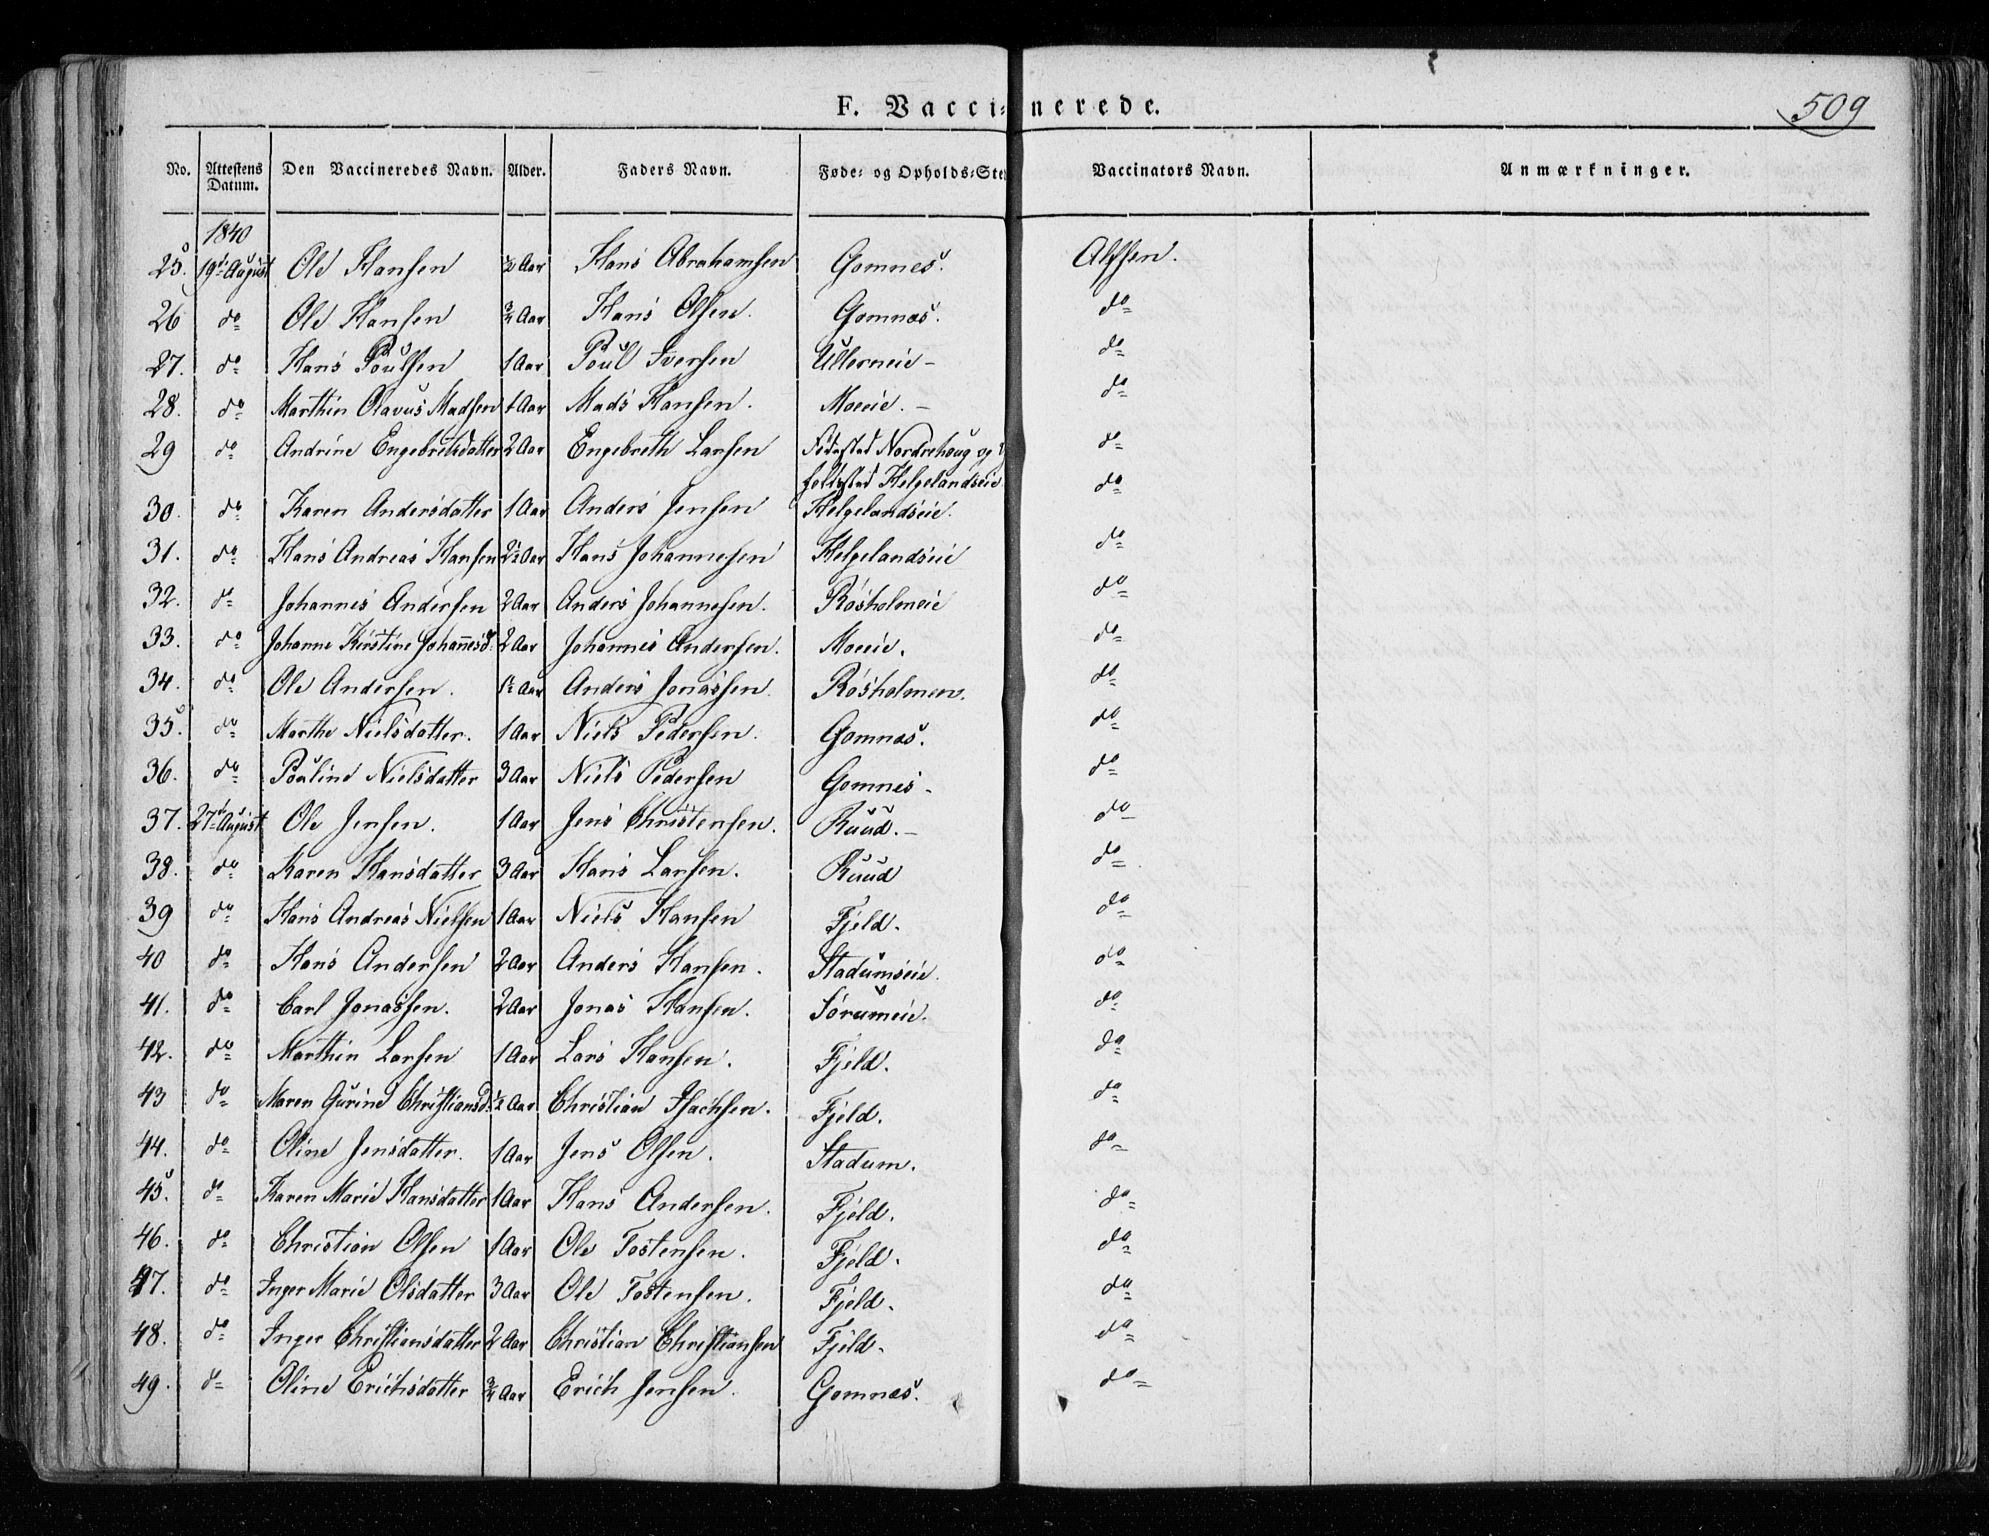 F. Vaccinerede.
509
No. Attestens Datum. Den Vaccineredes Navn. Alder. Faders Navn. Føde- og Opholds-Ste Vaccinators Navn. Anmærkninger.
1840
25. 19de August Ole Hansen ½ Aar Hans Abrahamsen Gomnes. Alfsen.
26 do Ole Hansen ¾ Aar Hans Olsen. Gomnæs. do
27. do Hans Poulsen 1 Aar Poul Iversen Ullerneie - do
28. do Marthin Olavus Madsen 1 Aar Mads Hansen. Moeeie. - do
29 do Andrine Engebretsdatter 2 Aar Engebreth Larsen Fødested Nordrehoug og do
Helgelandseie
30. do Karen Andersdatter 1 Aar Anders Jensen Helgelandseie. do
31. do Hans Andreas Hansen 2½ Aar Hans Johannesen Helgelandseie do
32. do Johannes Andersen 2 Aar Anders Johannesen. Røsholmeie do
33. do Johanne Kirstine Johannesd. 2 Aar Johannes Andersen. Moeeie. do
34. do Ole Andersen. 1½ Aar Anders Jonassen. Røsholmen. do
35. do Marthe Nielsdatter. 1 Aar Niels Pedersen. Gomnæs. do
36. do Pouline Nielsdatter 3 Aar Niels Pedersen Gomnes - do
37. 27de August Ole Jensen. 1 Aar Jens Christensen. Ruud. - do
38. do Karen Hansdatter 3 Aar Hans Larsen. Ruud do
39 do Hans Andreas Nielsen 1 Aar Niels Hansen Fjeld. do
40 do Hans Andersen 2 Aar Anders Hansen. Stadumseie. do
41. do Carl Jonassen. 2 Aar Jonas Hansen. Sørumeie. do
42. do Marthin Larsen 1 Aar Lars Hansen. Fjeld. do
43 do Maren Gurine Christiansd. ½ Aar Christian Isachsen. Fjeld. do
44. do Oline Jensdatter. 1 Aar Jens Olsen. Stadum. do
45. do Karen Marie Hansdatter 1 Aar Hans Andersen. Fjeld. do
46. do Christian Olsen 1 Aar Ole Tostensen. Fjeld. do
47. do Inger Marie Olsdatter 3 Aar Ole Tostensen. Fjeld. do
48. do Inger Christiansdatter 2 Aar Christian Christiansen Fjeld. do
49. do Oline Erichsdatter ¾ Aar Erich Jensen. Gomnæs. do